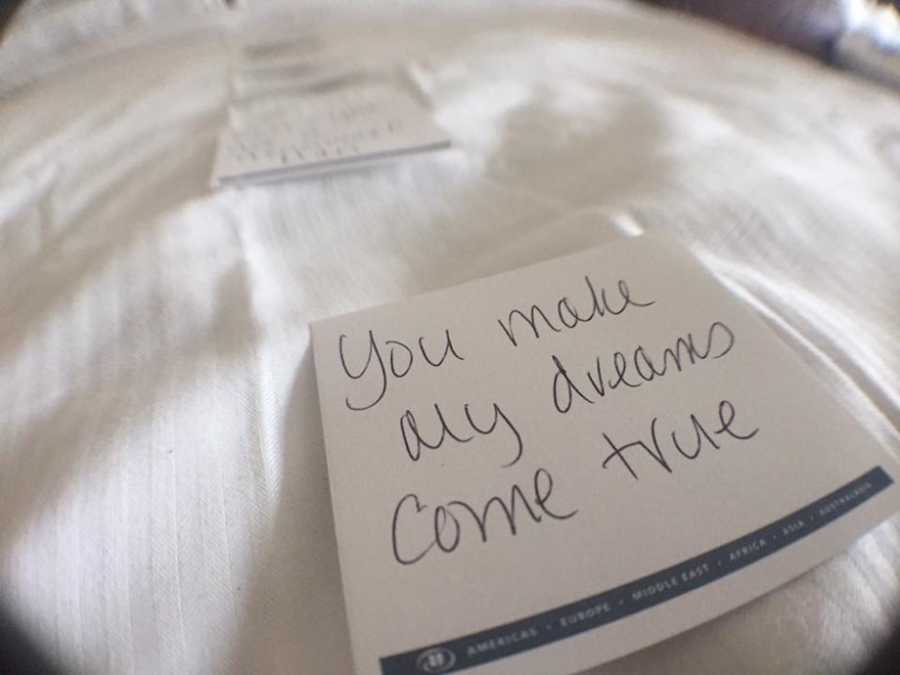 You make
my dreams
come true
AMERICAS • EUROPE • MIDDLE EAST • AFRICA • ASIA • AUSTRALASIA